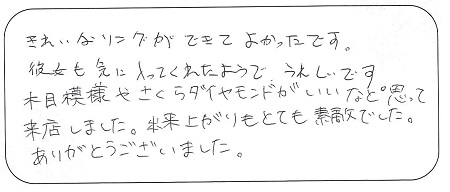 きれいなリングができてよかったです。
彼女も気に入ってくれたようで、うれしいです
木目模様やさくらダイヤモンドがいいなと思って
来店しました。出来上がりもとても素敵でした。
ありがとうございました。